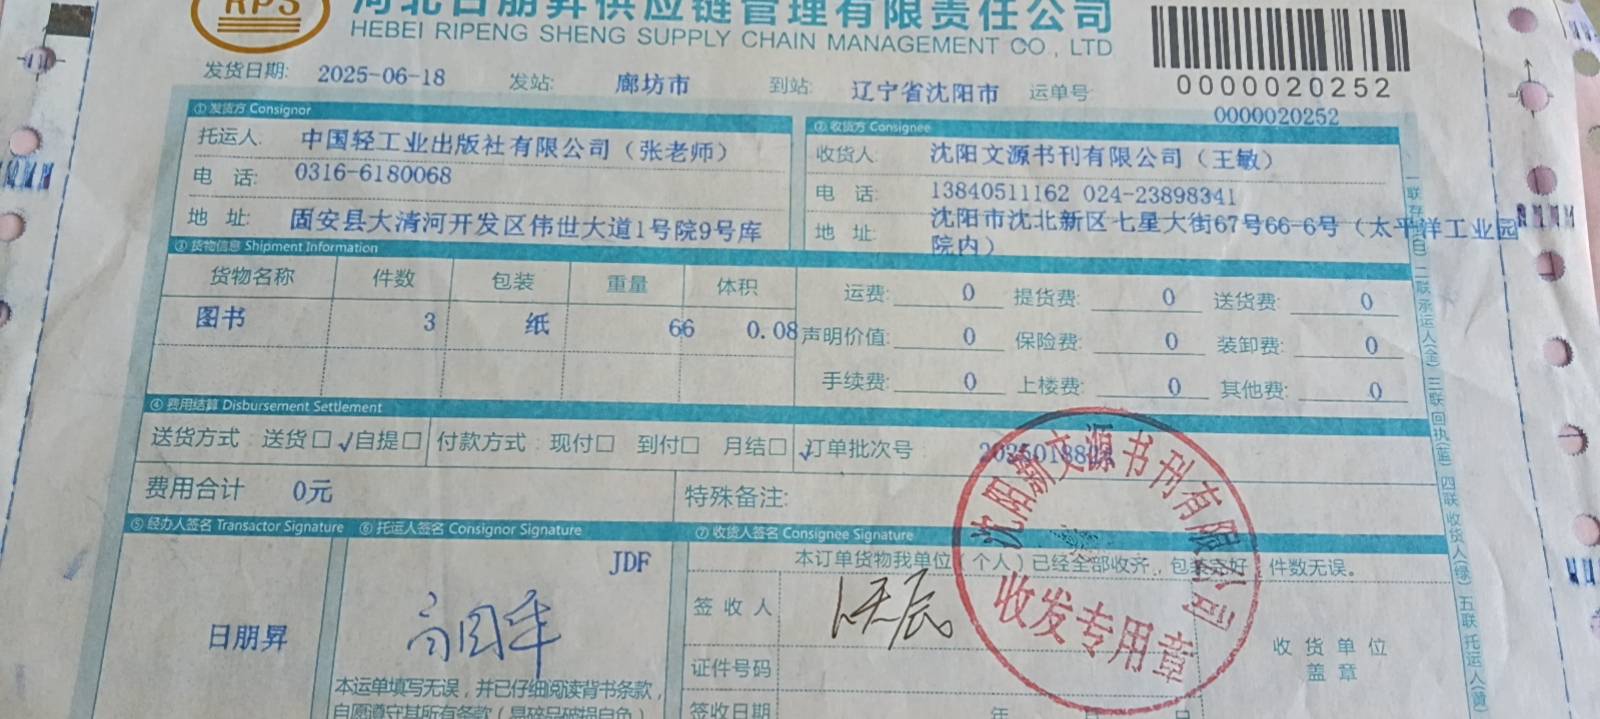 RPS
河北日朋昇供应链管理有限责任公司
HEBEI RIPENG SHENG SUPPLY CHAIN MANAGEMENT CO., LTD
0000020252
发货日期: 2025-06-18 发站: 廊坊市 到站: 辽宁省沈阳市 运单号 0000020252
① 发货方 Consignor
② 收货方 Consignee
托运人: 中国轻工业出版社有限公司（张老师）
收货人: 沈阳文源书刊有限公司（王敏）
电 话: 0316-6180068
电 话: 13840511162 024-23898341
地 址: 固安县大清河开发区伟世大道1号院9号库
地 址: 沈阳市沈北新区七星大街67号66-6号（太平洋工业园
院内）
③ 货物信息 Shipment Information
货物名称 件数 包装 重量 体积
图书 3 纸 66 0.08
运费: 0 提货费: 0 送货费: 0
声明价值: 0 保险费: 0 装卸费: 0
手续费: 0 上楼费: 0 其他费: 0
④ 费用结算 Disbursement Settlement
送货方式: 送货□ √自提□ 付款方式: 现付□ 到付□ 月结□ √订单批次号:
费用合计 0元 特殊备注:
⑤ 经办人签名 Transactor Signature ⑥ 托运人签名 Consignor Signature ⑦ 收货人签名 Consignee Signature
JDF
本订单货物我单位（个人）已经全部收齐，包装完好，件数无误。
日朋昇
签 收 人
沈阳新文源书刊有限公司
收发专用章
收 货 单 位
盖 章
证件号码
本运单填写无误，并已仔细阅读背书条款，
自愿遵守其所有条款（易碎品破损自负）
签收日期 年 月 日
二联承运人(金) 三联回执(蓝) 四联收货人(绿) 五联托运人(黄)